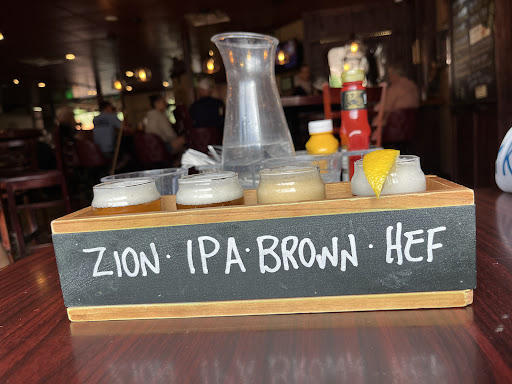 ZION · IPA · BROWN · HEF